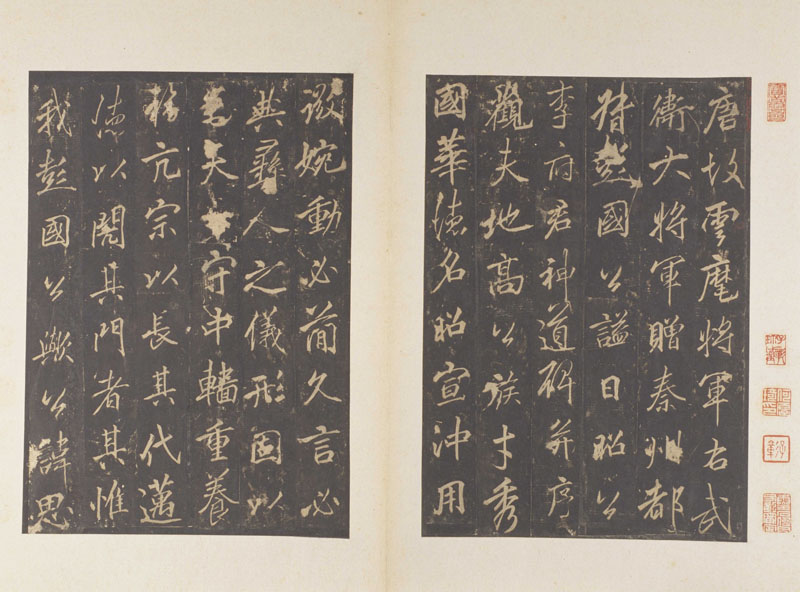 唐故雲麾將軍右武
衛大將軍贈秦州都
督彭國公謚曰昭公
李府君神道碑并序
觀夫地高公族才秀
國華德名昭宣沖用
微婉動必簡久言必
典彝人之儀形固以
天守中轓重養
亢宗以長其代邁
德以閤其門者其惟
我彭國公歟公諱思